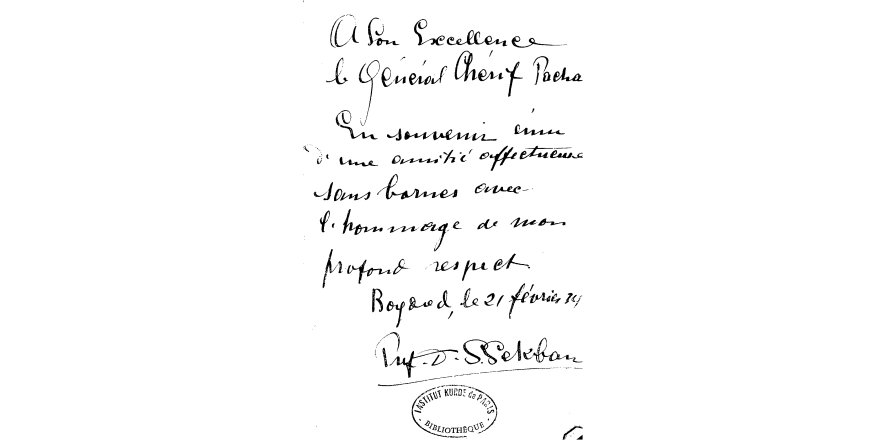 A Son Excellence
le Général Chérif Pacha
En souvenir ému
d'une amitié affectueuse
sans bornes avec
l'hommage de mon
profond respect
le 21 février 34
Prof. Dr. S. Sekban
INSTITUT KURDE de PARIS
BIBLIOTHÈQUE